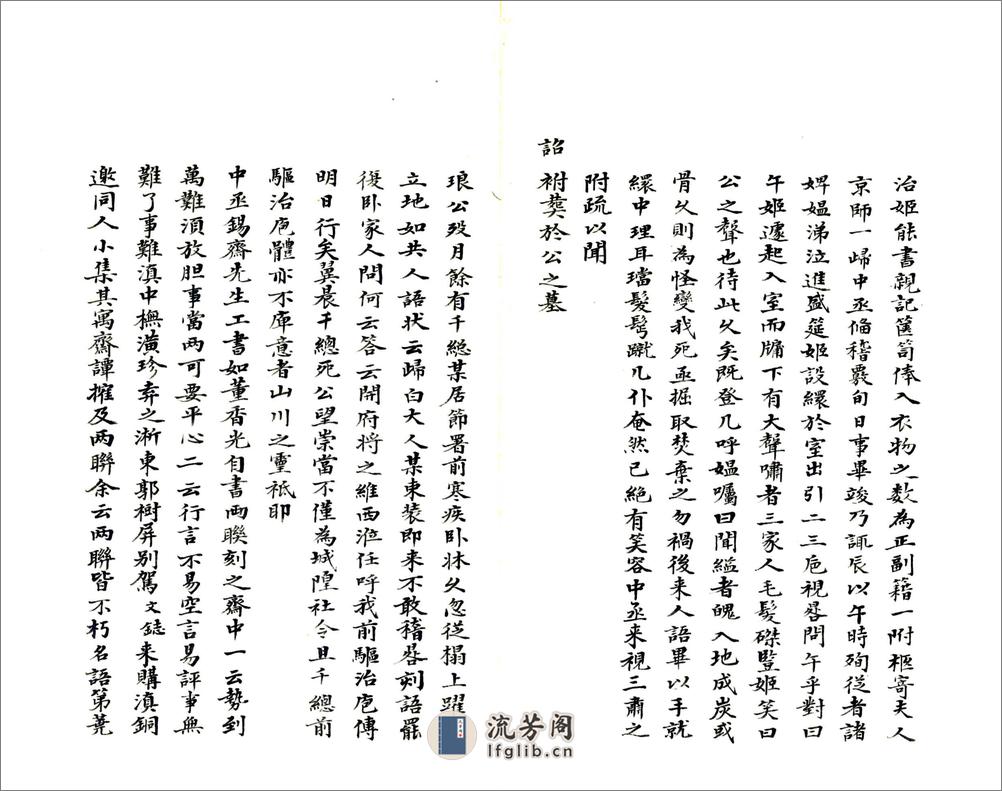 治姬能書親記篋笥俸入衣物之数為正副籍一附柩寄夫人
京師一歸中丞俻稽覈旬日事畢竣乃諏辰以午時殉從者諸
婢媪涕泣進盛筵姬設繯於室出引二三卮視晷問午乎對曰
午姬遽起入室而牖下有大聲嘯者三家人毛髮磔豎姬笑曰
公之聲也待此久矣既登几呼媪囑曰聞縊者魄入地成炭或
骨久則為怪變我死亟掘取焚棄之勿禍後来人語畢以手就
繯中理耳璫髮髩蹴几仆奄然已絕有笑容中丞来視三肅之
附疏以聞
詔祔葬於公之墓
琅公歿月餘有千緫某居節署前寒疾卧牀久忽從榻上躍
立地如共人語状云歸白大人某束装即来不敢稽晷刻語罷
復卧家人問何云答云開府將之維西涖任呼我前驅治卮傳
明日行矣翼晨千總死公望崇當不僅為城隍社令且千總前
驅治卮體亦不庳意者山川之靈袛耶
中丞錫齋先生工書如董香光自書両聯刻之齋中一云勢到
萬難須放胆事當两可要平心二云行言不易空言易評事無
難了事難滇中橅潢珍弆之淅東郭樹屏别駕文鋕来購滇銅
邀同人小集其寓齋譚㩁及两聯余云两聯皆不朽名語第堯
流芳阁
lfglib.cn